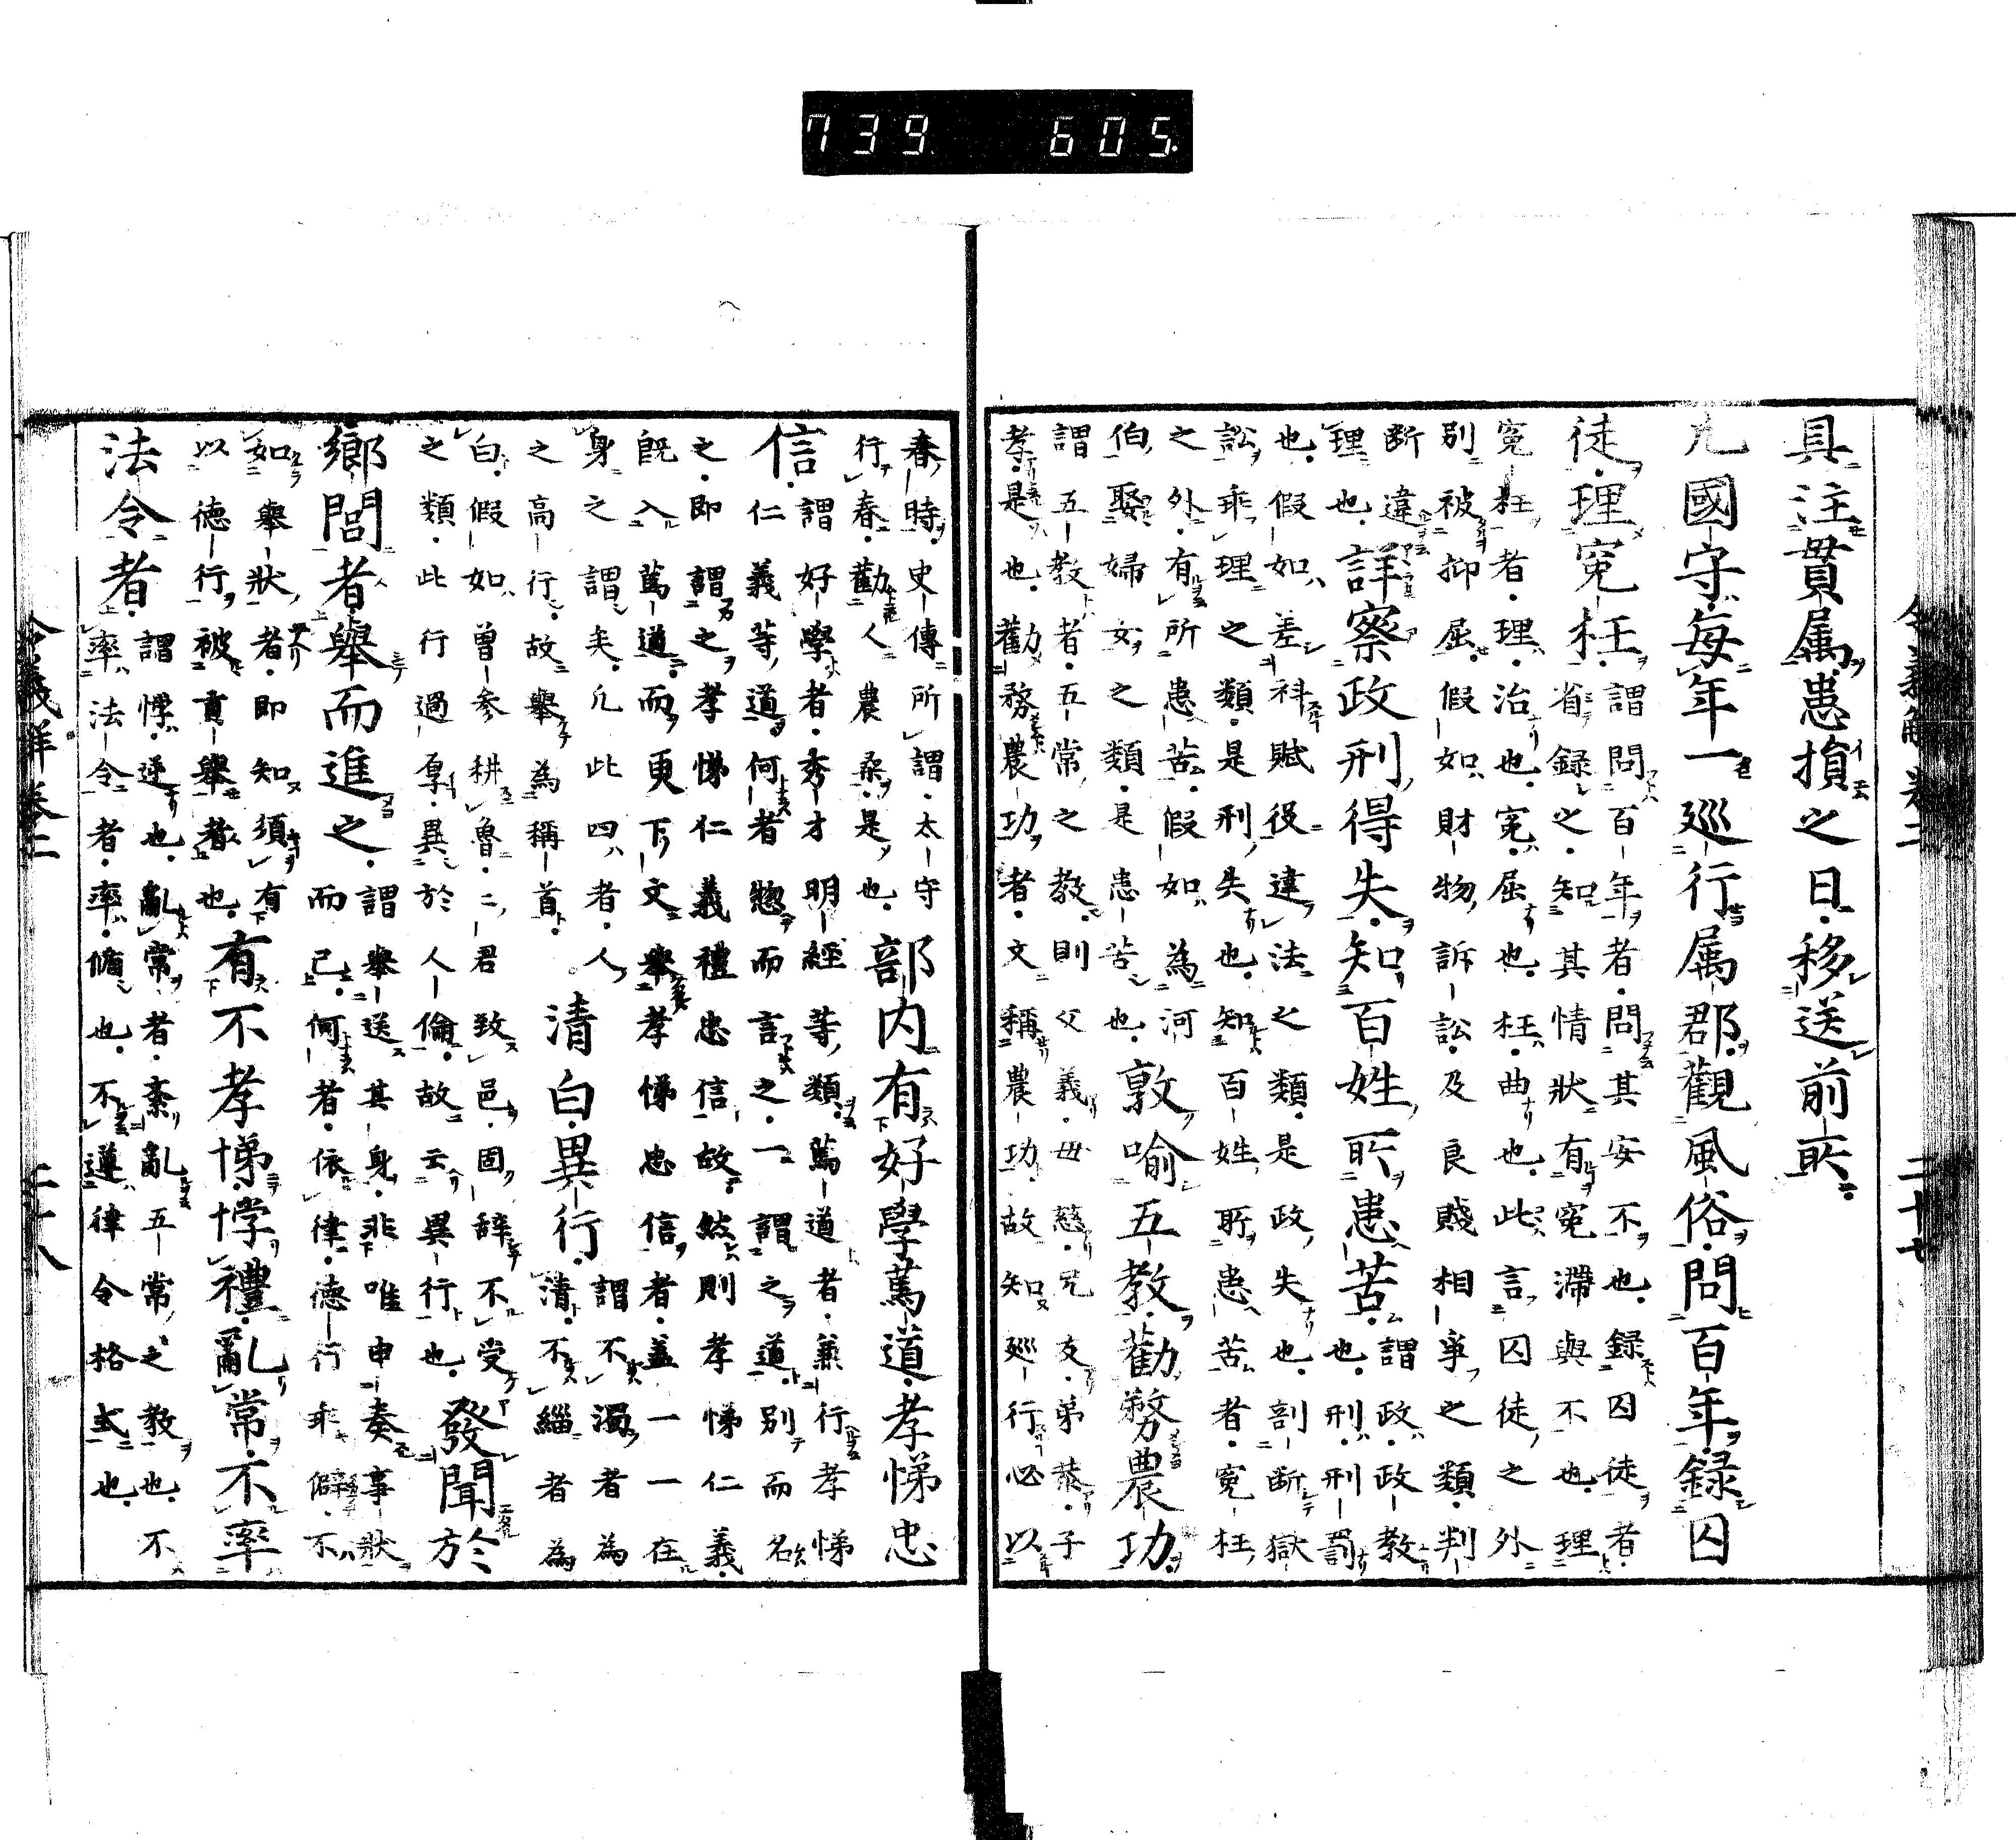 令義解 巻二 二十七
具注貫属患損之日移送前所
凡國守毎年一巡行属郡觀風俗問百年録囚
徒理寃枉
謂問百年者問其安不也録囚徒者
省録之知其情狀有寃滯與不也理
寃枉者理治也寃屈也枉曲也此言囚徒之外
別被抑屈假如財物訴訟及良賤相爭之類判
断違
理也
詳察政刑得失知百姓所患苦
謂政政教
也刑刑罰
也假如差科賦役違法之類是政失也剖断獄
訟乖理之類是刑失也知百姓所患苦者寃枉
之外有所患苦假如為河
伯娶婦女之類是患苦也
敦喻五教勸務農功
謂五教者五常之教則父義母慈兄友弟恭子
孝是也勸務農功者文稱農功故知巡行必以
春時史傳所謂太守
行春勸人農桑是也
部内有好學篤道孝悌忠
信
謂好學者秀才明經等類篤道者兼行孝悌
仁義等道何者惣而言之一謂之道別而名
之即謂之孝悌仁義禮忠信故然則孝悌仁義
既入篤道而更下文舉孝悌忠信者盖一一在
身之謂矣凡此四者人
之高行故舉為稱首
清白異行
謂不濁者為
清不緇者為
白假如曽参耕魯二君致邑固辞不受
之類此行過厚異於人倫故云異行也
發聞於
鄉閭者舉而進之
謂舉送其身非唯申奏事狀
而已何者依律德行乖僻不
如舉狀者即知須有
以德行被貢舉者也
有不孝悌悖禮亂常不率
法令者
謂悖逆也亂常者紊亂五常之教也不
率法令者率循也不遵律令格式也
令義解 巻二 二十八
739 605